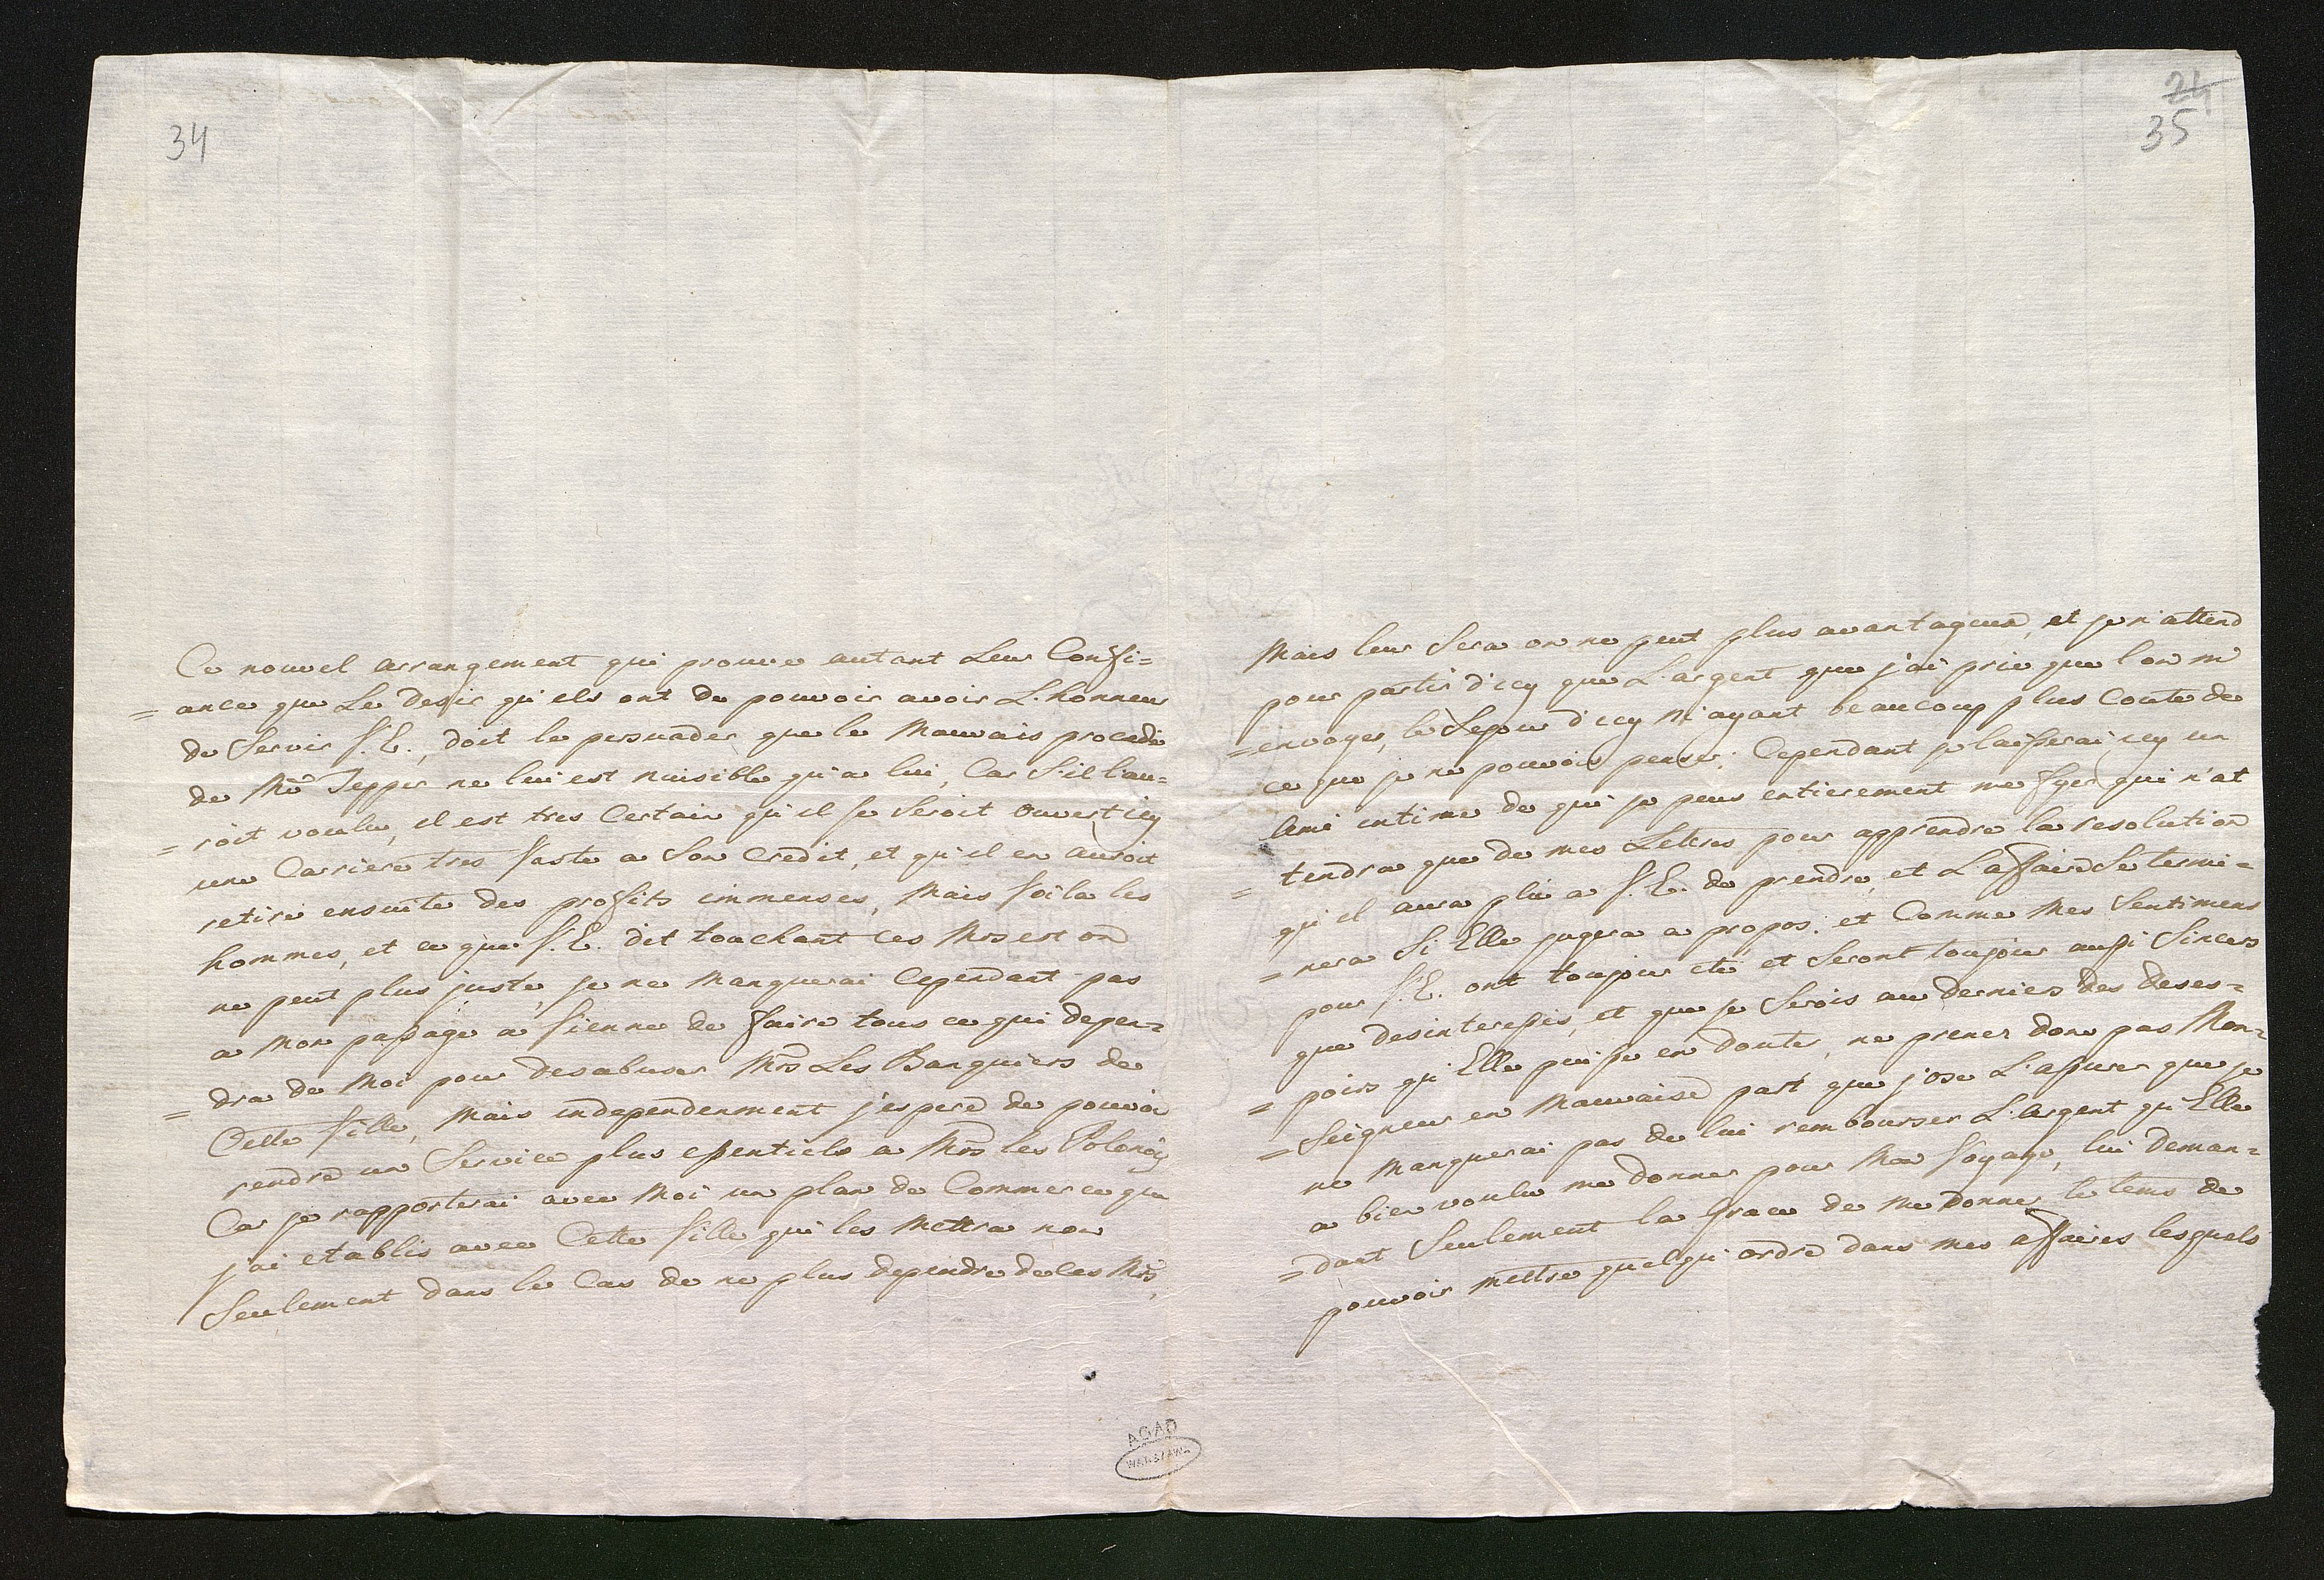 34
Ce nouvel arrangement qui prouve autant Leur Confi=
= ance que Le desir qu'ils ont de pouvoir avoir L'honneur
de Servir V. E., doit le persuader que le Mauvais procedé
de Mr Tepper ne lui est nuisible qu'a lui, Car S'il l'au=
= roit voulu, il est tres Certain qu'il se Seroit ouvert icy
une Carriere tres Vaste a Son Credit, et qu'il en auroit
retiré ensuite des profits immenses, Mais Voila les
hommes, et ce que V. E. dit touchant ces Mrs est on
ne peut plus juste, je ne Manquerai Cependant pas
a Mon passage a Vienne de faire tous ce qui depen=
= dra de Moi pour desabuser Mrs Les Banquiers de
Cette Ville, Mais independenment j'espere de pouvoir
rendre un Service plus essentiels a Mrs les Polonois
Car je rapporterai avec Moi un plan de Commerce que
j'ai etablis avec Cette Ville qui les Mettra non
Seulement dans le Cas de ne plus dependre de ces Mrs,
24
35
Mais leur Sera on ne peut plus avantageux, et je n'attend
pour partir d'icy que L'argent que j'ai prie que l'on m'
= envoyes, le Sejour d'icy M'ayant beaucoup plus Couté de
ce que je ne pouvois penser. Cependant je laisserai icy un
Ami intime de qui je peus entierement me fyer qui n'at
= tendra que de mes Lettres pour apprendre la resolution
qu'il aura plu a V. E. de prendre, et L'affaire Se termi=
= nera Si Elle jugera a propos. et Comme Mes Sentimens
pour V. E. ont toujour eté et Seront toujour aussi Sinceres
que desinteressés, et que je Serois au dernier des deses=
= poirs qu'Elle puisse en douter, ne prenez donc pas Mon=
= Seigneur en Mauvaise part que j'ose L'assurer que je
ne Manquerai pas de lui rembourser L'Argent qu'Elle
a bien voulu me donner pour Mon Voyage, lui deman=
= dant Seulement la Grace de Me donner le tems de
pouvoir mettre quelqu'ordre dans mes affaires lesquels
AGAD
WARSZAWA